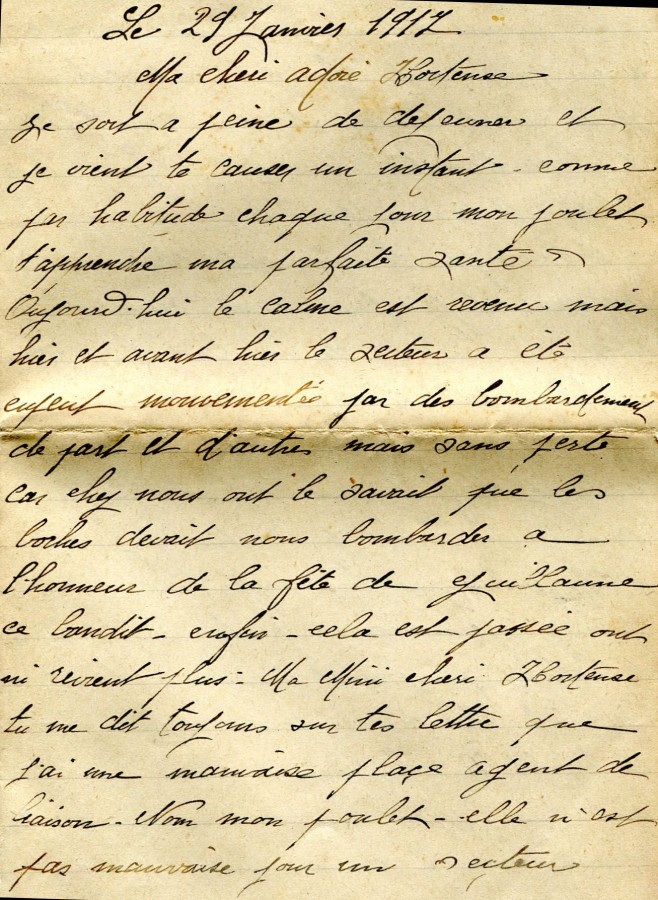 Le 29 Janvier 1917
Ma cheri adoré Hortense
Je sort a peine de dejeuner et
je vient te causer un instant - comme
par habitude chaque jour mon poulet
t'apprendre ma parfaite santé
Aujourd'hui le calme est revenu mais
hier et avant hier le secteur a été
mouvementée par des bombardement
de part et d'autre mais sans perte
car chez nous ont le savait que les
boches devait nous bombarder a
l'honneur de la fête de Guillaume
ce bandit - enfin - cela est passée ont
ni revient plus - Ma Mimi cheri Hortense
tu me dit toujours sur tes lettre que
j'ai une mauvaise plaçe agent de
liaison - Nom mon poulet - elle n'est
pas mauvaise pour un secteur